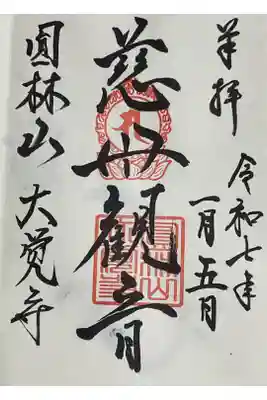 奉拝
令和七年
一月五日
慈母観音
圓林山
大覚寺